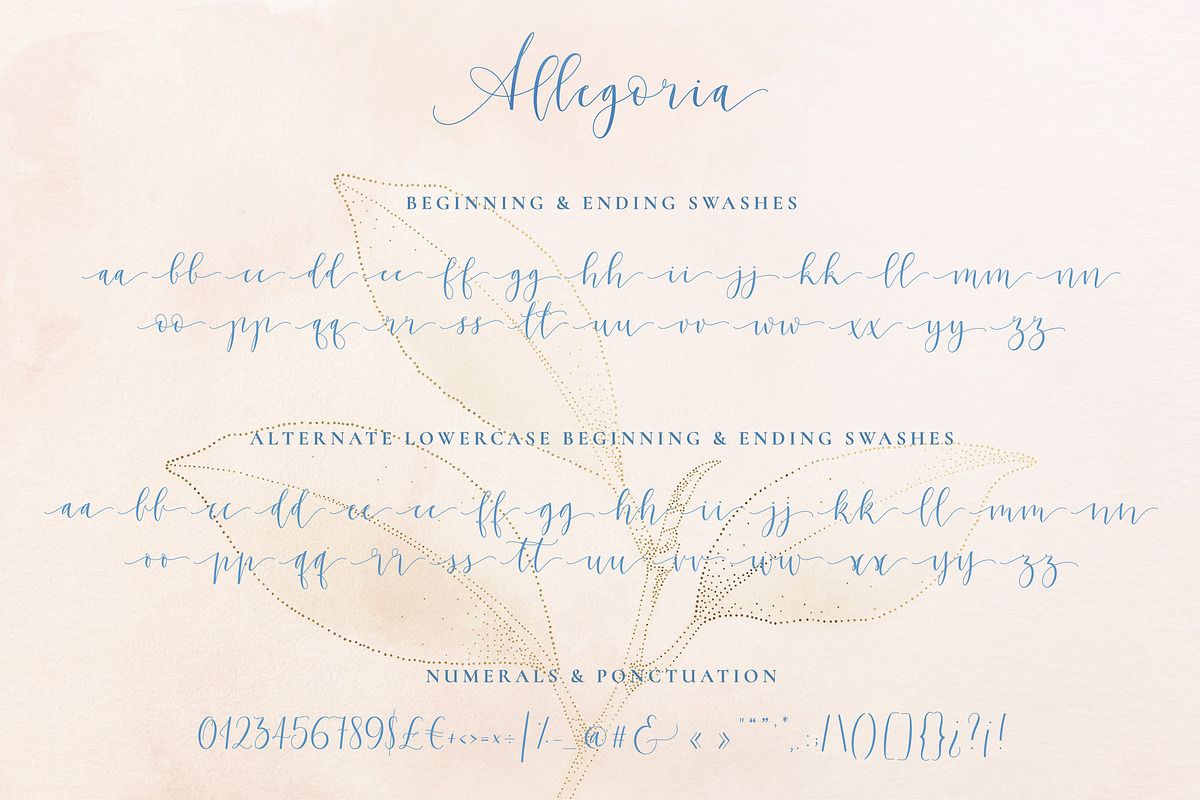 Allegoria
BEGINNING & ENDING SWASHES
aa bb cc dd ee ff gg hh ii jj kk ll mm nn
oo pp qq rr ss tt uu vv ww xx yy zz
ALTERNATE LOWERCASE BEGINNING & ENDING SWASHES
aa bb cc dd ee cc ff gg hh ii jj kk ll mm nn
oo pp qq rr ss tt uu vv ww xx yy zz
NUMERALS & PONCTUATION
0123456789$£€+<>=×÷|⁒-_@#& « » "“”'* ,.:;/\()[]{}¿?¡!